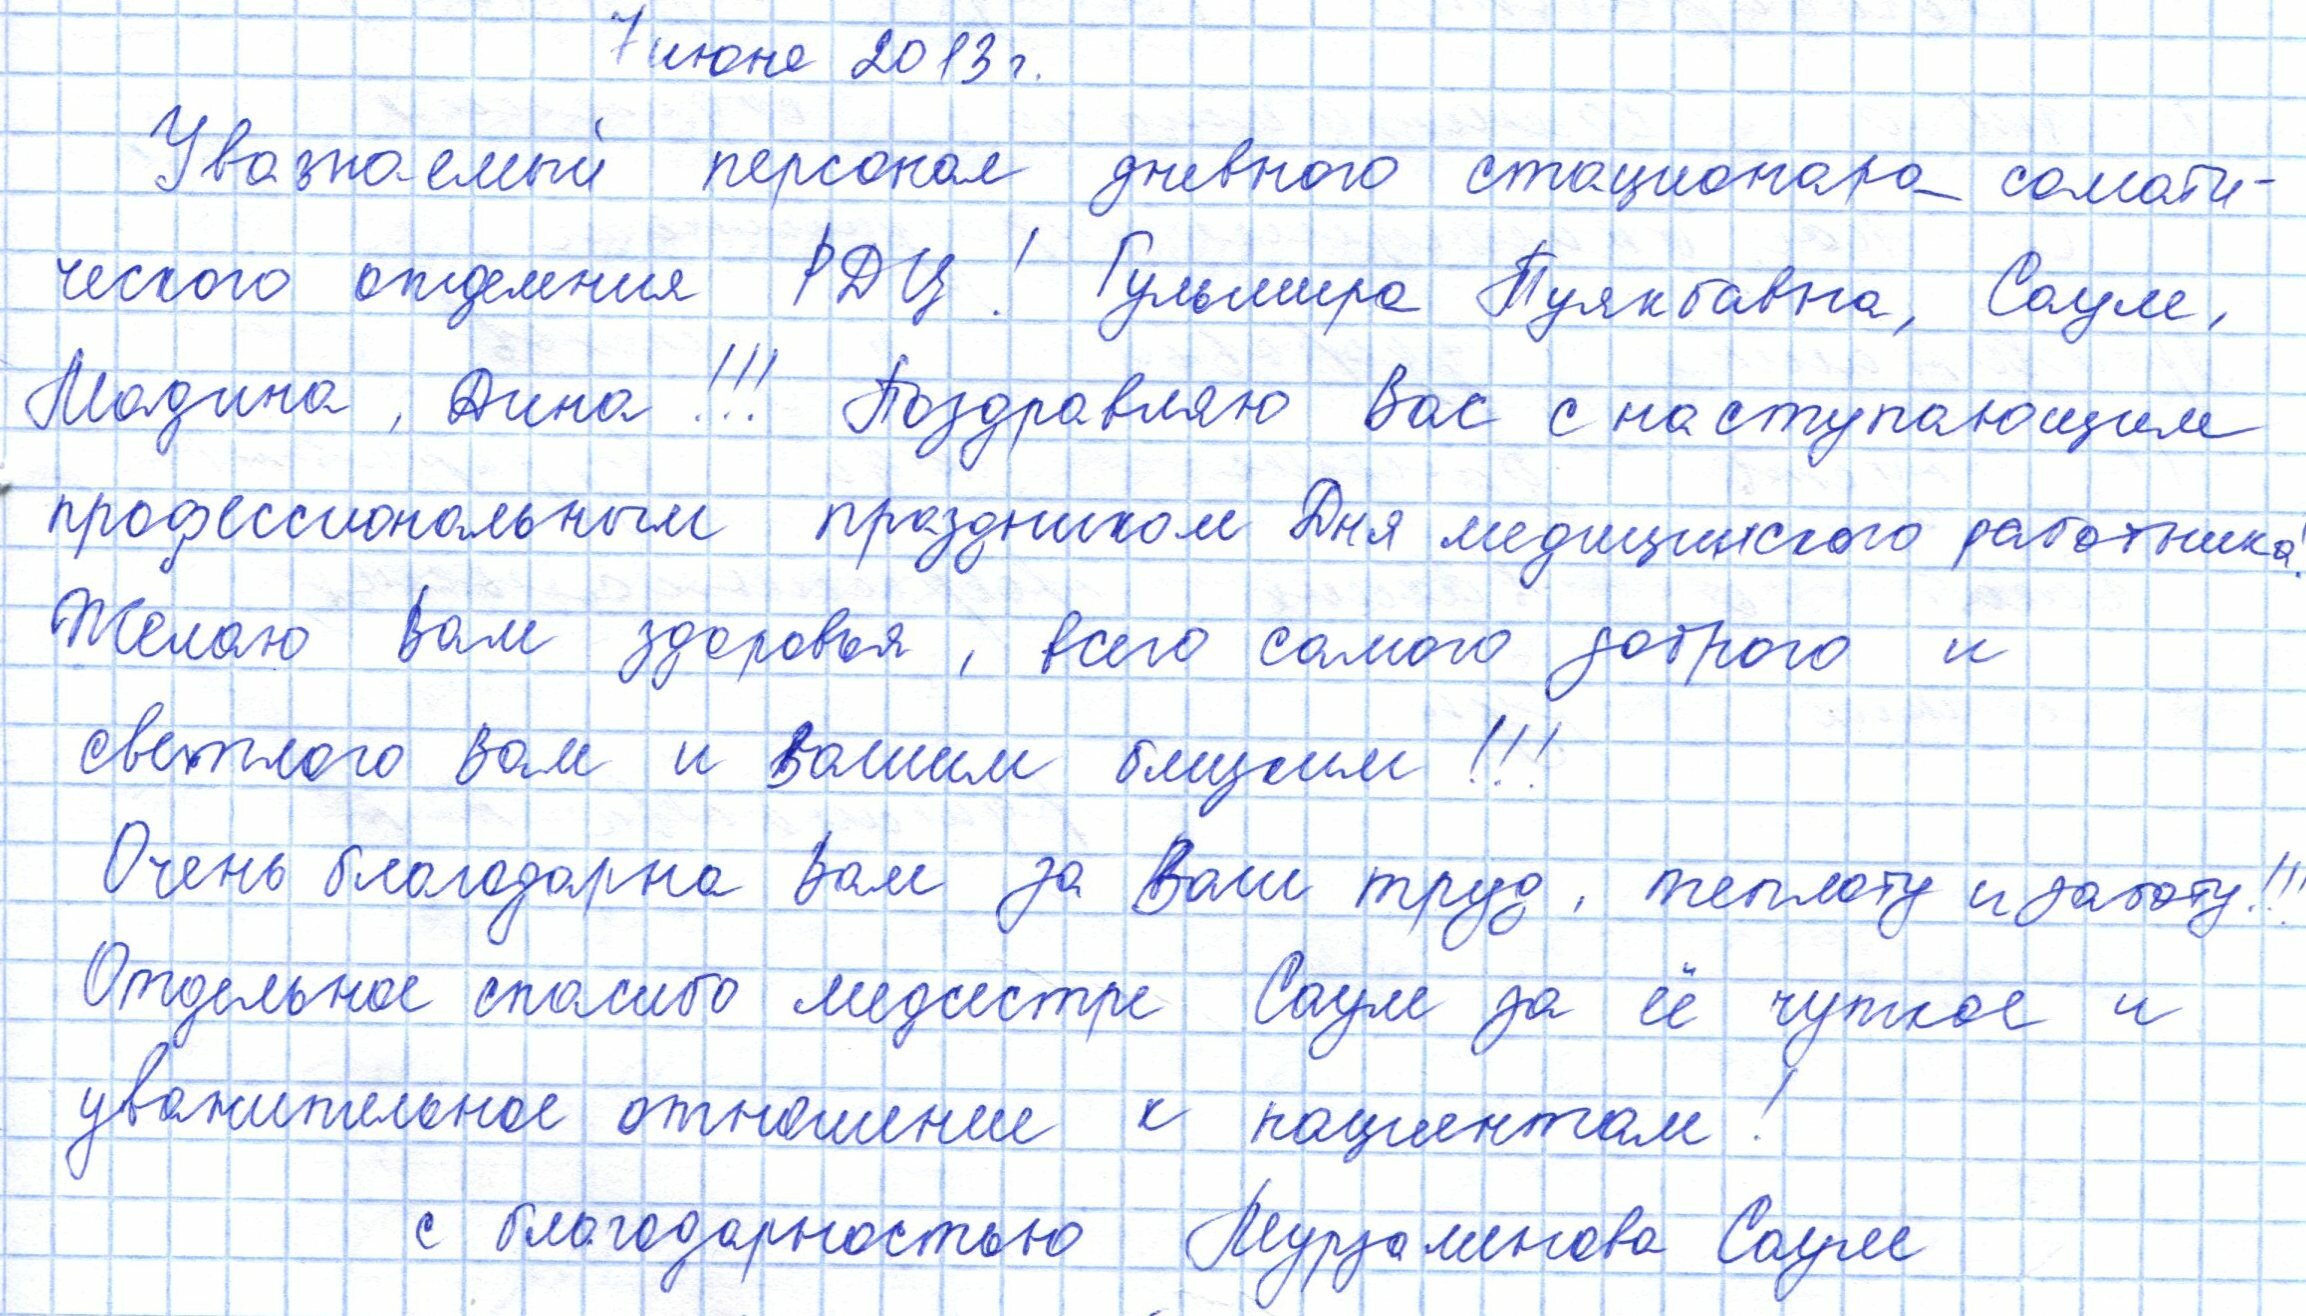 7 июне 2013 г.
Уважаемый персонал дневного стационара сомати-
ческого отделения РДЦ! Гульмира Пуякбавна, Сауле,
Мадина, Дина!!! Поздравляю Вас с наступающим
профессиональным праздником Дня медицинского работника!
Желаю Вам здоровья, всего самого доброго и
светлого Вам и Вашим близким!!!
Очень благодарна Вам за Ваш труд, теплоту и заботу!!!
Отдельное спасибо медсестре Сауле за её чуткое и
уважительное отношение к пациентам!
с благодарностью Мурзаменова Сауле